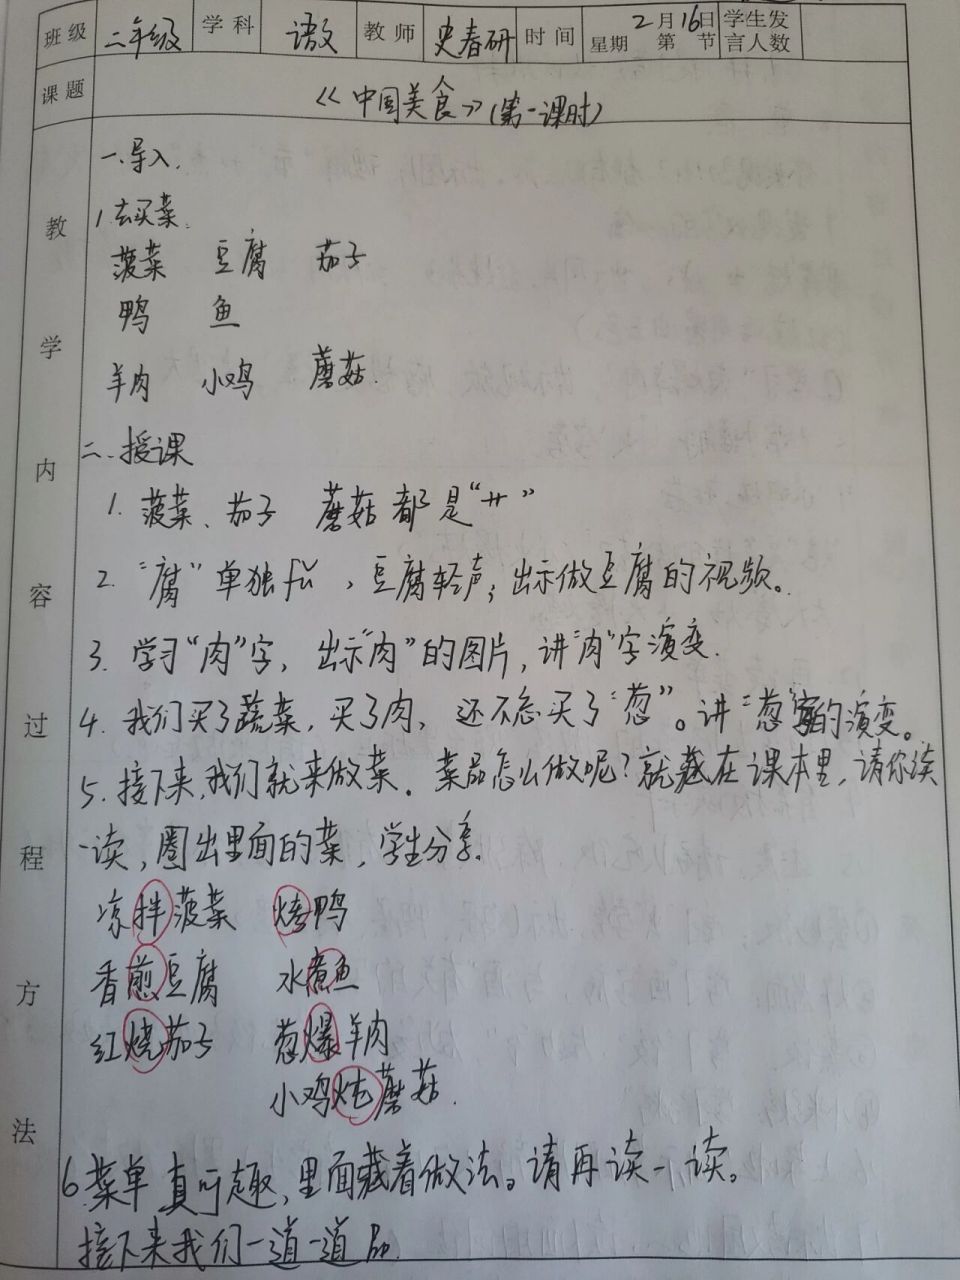 班级 二年级 学科 语文 教师 史春研 时间 2月16日 星期 第 节 学生发言人数
课题 《中国美食》(第一课时)
教学内容过程方法
一.导入.
1.去买菜.
菠菜 豆腐 茄子
鸭 鱼
羊肉 小鸡 蘑菇.
二.授课
1. 菠菜、茄子 蘑菇都是“艹”
2. “腐”单独fǔ，豆腐轻声；出示做豆腐的视频。
3. 学习“肉”字，出示“肉”的图片，讲“肉”字演变.
4. 我们买了蔬菜，买了肉，还不忘买了“葱”。讲“葱”字的演变。
5. 接下来，我们就来做菜．菜品怎么做呢？就藏在课本里，请你读
一读，圈出里面的菜，学生分享.
凉拌菠菜 烤鸭
香煎豆腐 水煮鱼
红烧茄子 葱爆羊肉
小鸡炖蘑菇.
6.菜单真有趣，里面藏着做法。请再读一读。
接下来我们一道一道品.